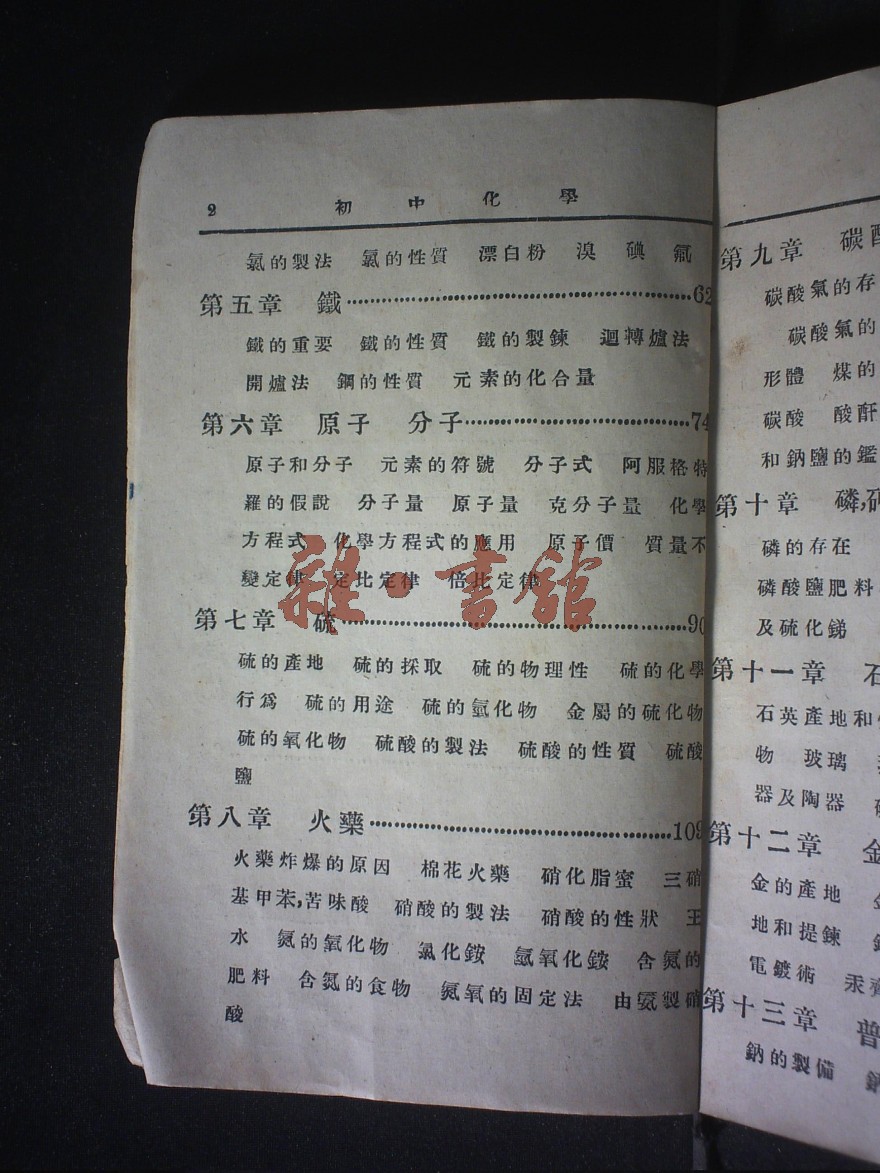 2 初中化學
氯的製法 氯的性質 漂白粉 溴 碘 氟
第五章 鐵……………………………………62
鐵的重要 鐵的性質 鐵的製鍊 迴轉爐法
開爐法 鋼的性質 元素的化合量
第六章 原子 分子……………………………74
原子和分子 元素的符號 分子式 阿服格特
羅的假說 分子量 原子量 克分子量 化學
方程式 化學方程式的應用 原子價 質量不
變定律 定比定律 倍比定律
第七章 硫……………………………………90
硫的產地 硫的採取 硫的物理性 硫的化學
行爲 硫的用途 硫的氫化物 金屬的硫化物
硫的氧化物 硫酸的製法 硫酸的性質 硫酸
鹽
第八章 火藥…………………………………109
火藥炸爆的原因 棉花火藥 硝化脂蜜 三硝
基甲苯,苦味酸 硝酸的製法 硝酸的性狀 王
水 氮的氧化物 氯化銨 氫氧化銨 含氮的
肥料 含氮的食物 氮氧的固定法 由氨製硝
酸
雜·書館
第九章 碳
碳酸氣的存
碳酸氣的
形體 煤的
碳酸 酸酐
和鈉鹽的鑑
第十章 磷,
磷的存在
磷酸鹽肥料
及硫化銻
第十一章 石
石英產地和
物 玻璃
器及陶器
第十二章 金
金的產地
地和提鍊
電鍍術 汞齊
第十三章 普
鈉的製備